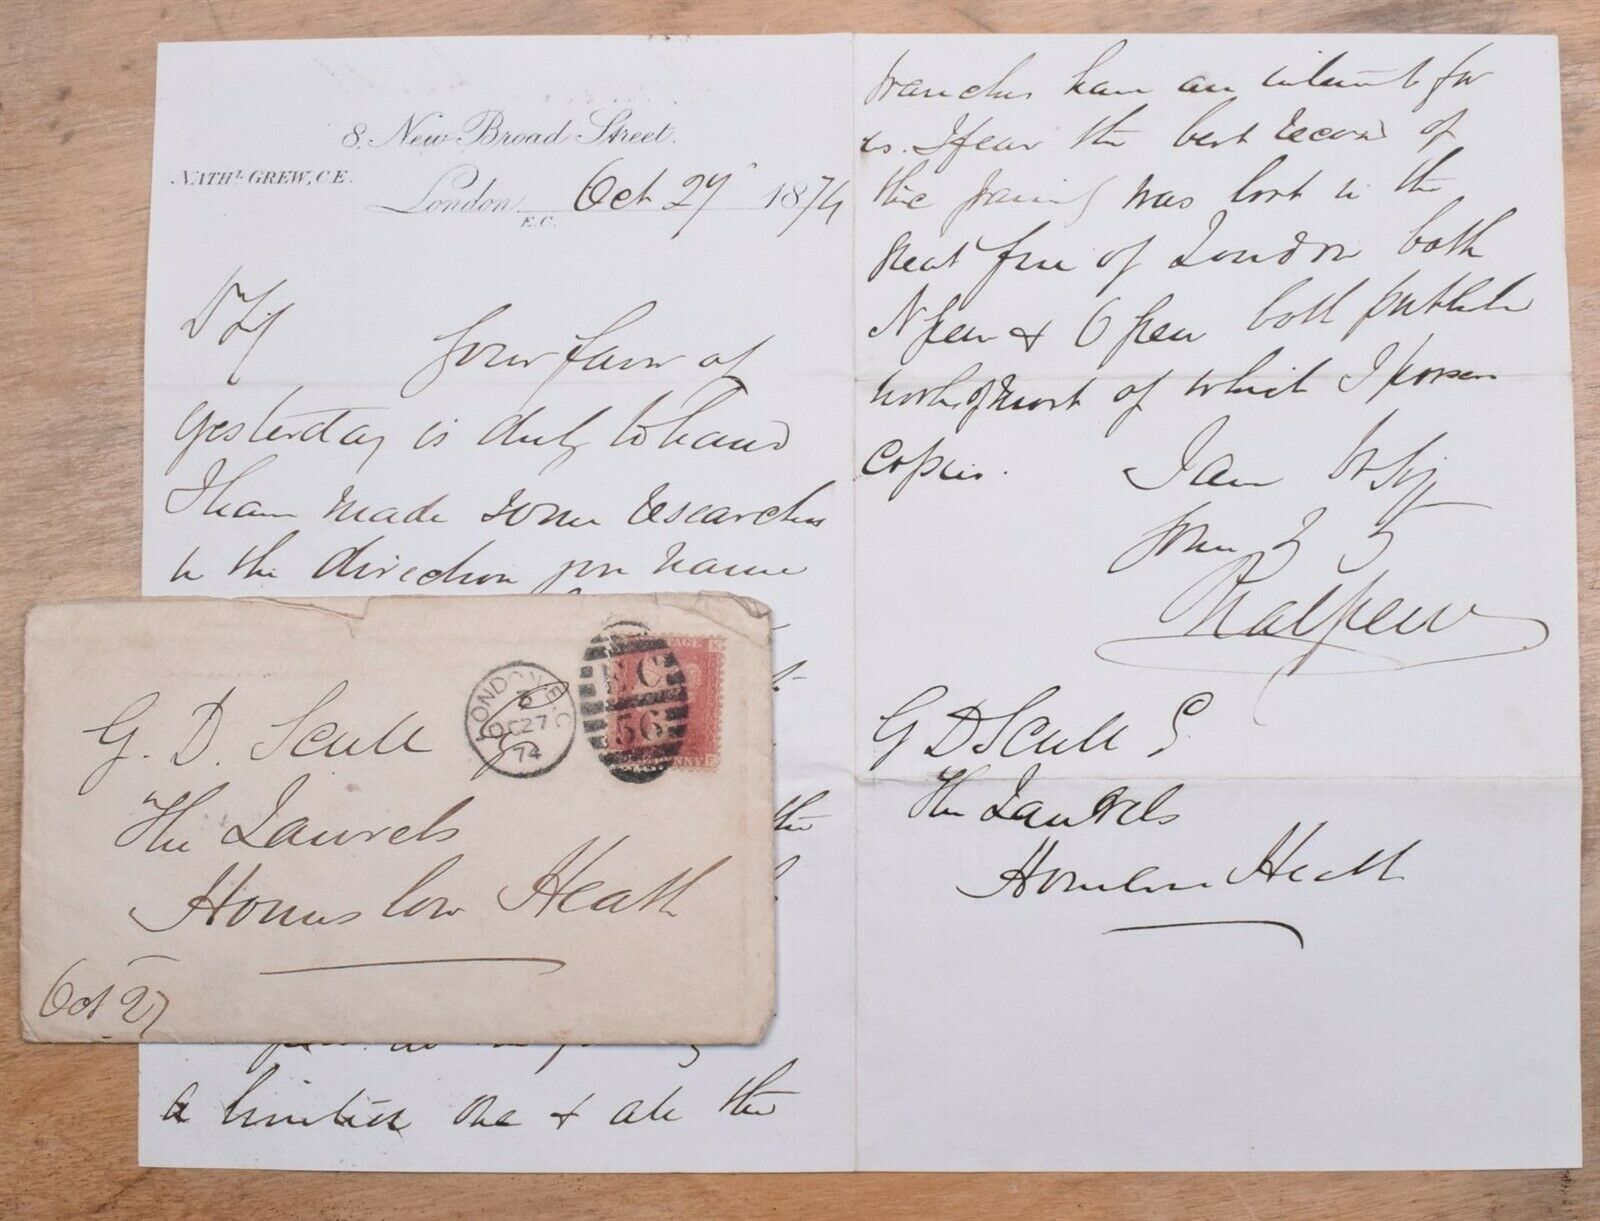 8. New Broad Street.
NATHL. GREW, C.E.
London Oct 27 1874
E.C.
D Sir
Your favor of
yesterday is duly to hand
I have made some researches
in the direction you name
the
a limited one & all the
branches have an interest for
us. I fear the best record of
the family was lost in the
great fire of London both
N Grew & O Grew both publish
work most of which I possess
copies.
I am D Sir
Yours
Nat Grew
G D Scull E
The Laurels
Hounslow Heath
G. D. Scull
The Laurels
Hounslow Heath
Oct 27
LONDON E.C
OC 27
74
E.C
56